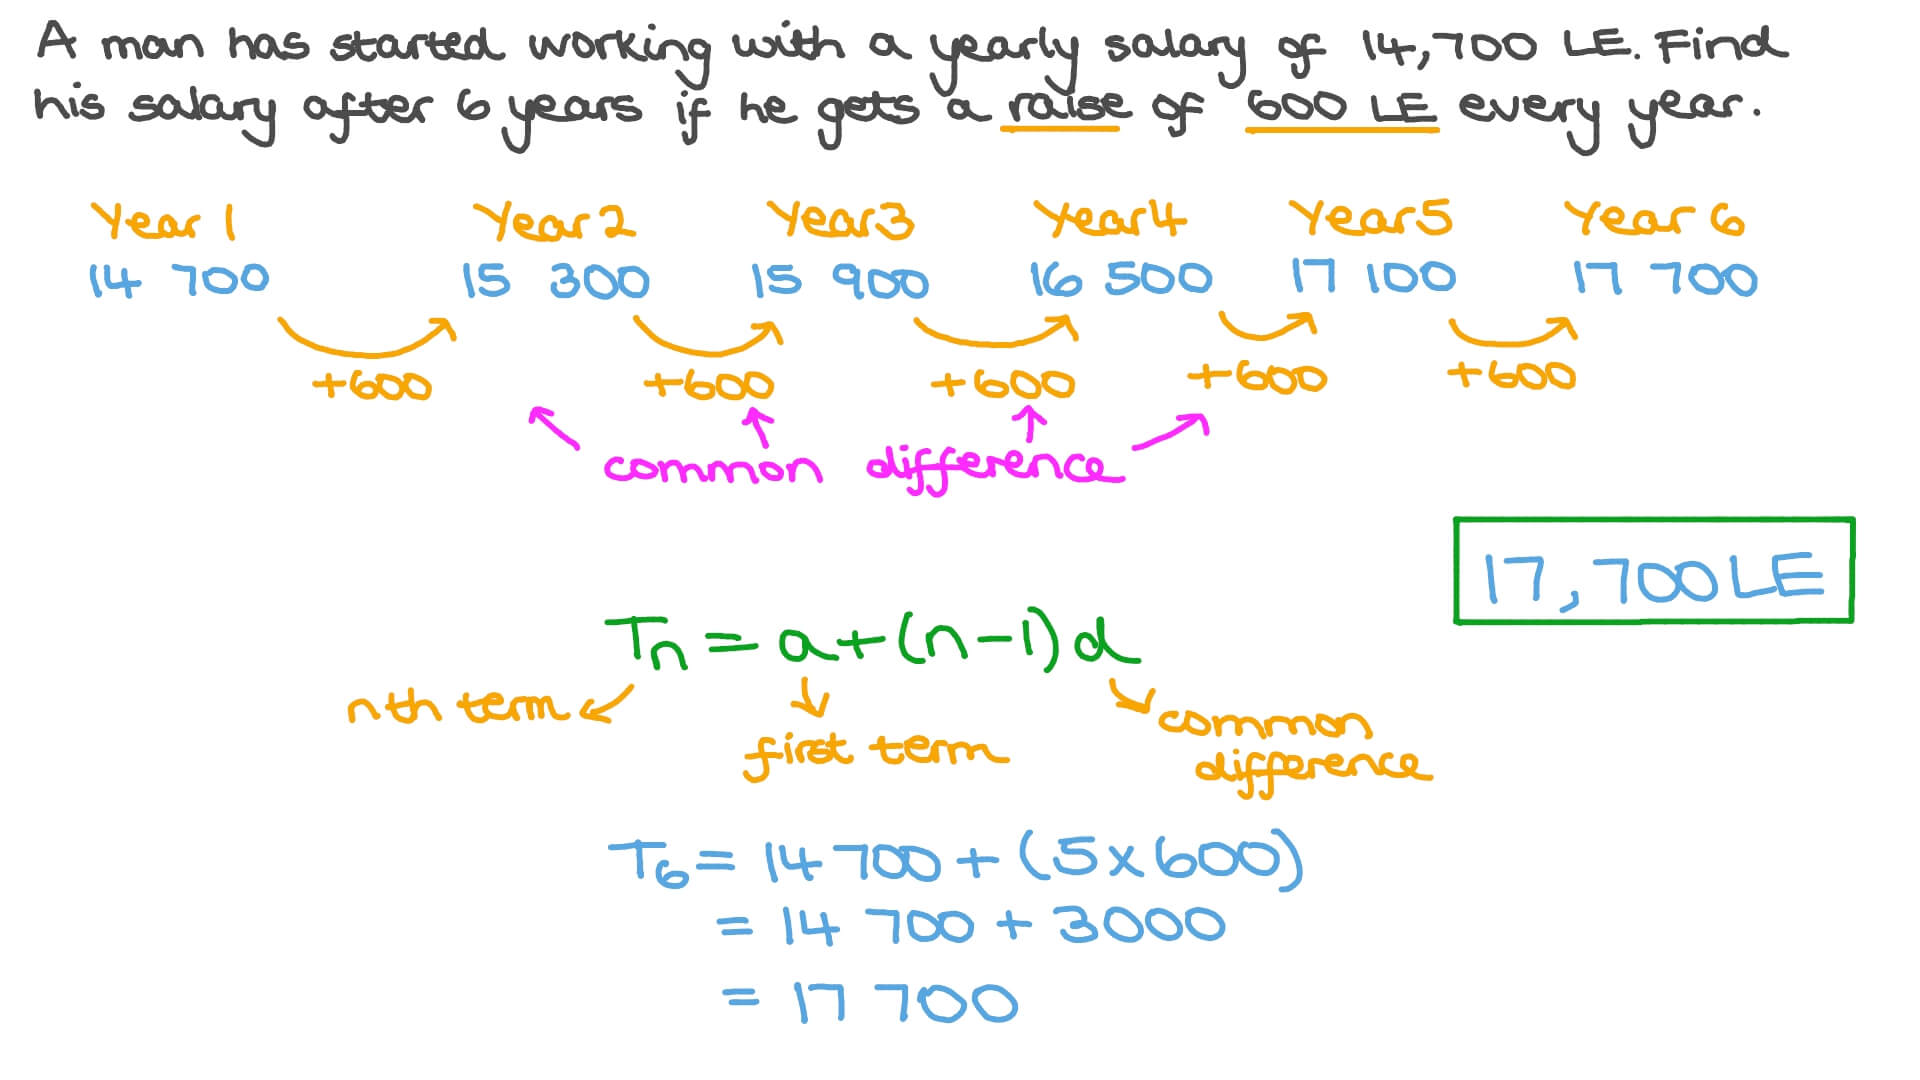 A man has started working with a yearly salary of 14,700 LE. Find
his salary after 6 years if he gets a raise of 600 LE every year.
Year 1 Year 2 Year 3 Year 4 Year 5 Year 6
14 700 15 300 15 900 16 500 17 100 17 700
+600 +600 +600 +600 +600
common difference
17,700 LE
Tn = a + (n - 1) d
nth term
first term
common
difference
T6 = 14 700 + (5 x 600)
= 14 700 + 3000
= 17 700